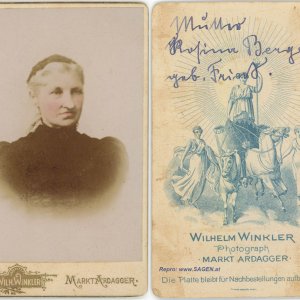 WILH. WINKLER
MARKT ARDAGGER.
Mutter
Rosina Berge
geb. Friesl.
WILHELM WINKLER
Photograph
MARKT ARDAGGER
Repro: www.SAGEN.at
Die Platte bleibt für Nachbestellungen aufb